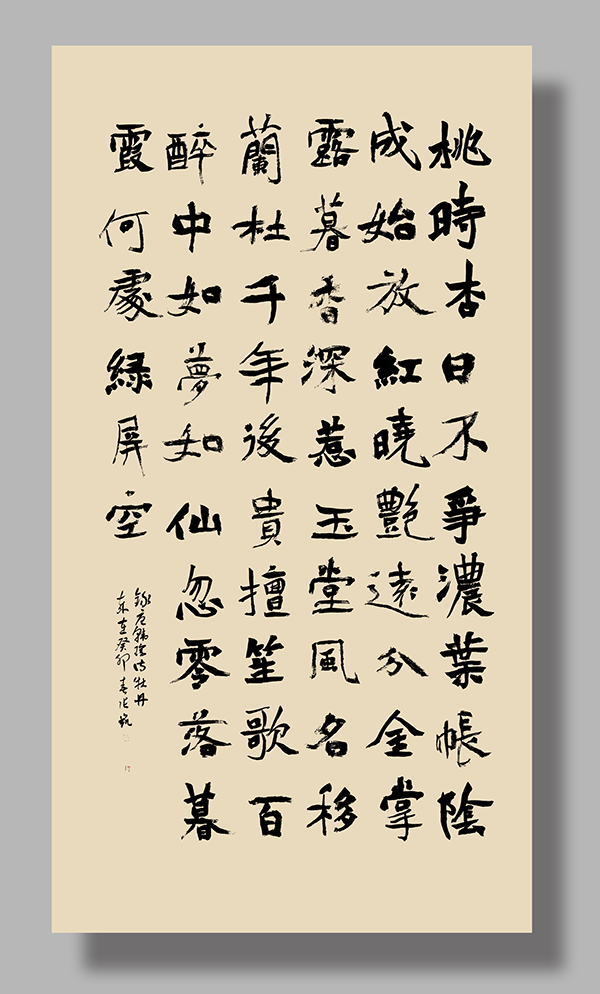 桃時杏日不爭濃葉帳陰
成始放紅曉艷遠分金掌
露暮香深惹玉堂風名移
蘭杜千年後貴擅笙歌百
醉中如夢如仙忽零落暮
霞何處緑屏空
錄唐韓琮詩牡丹
歲在癸卯春